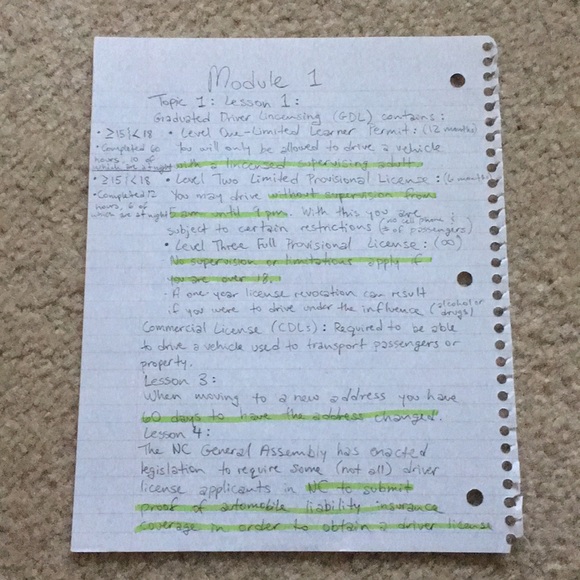 Module 1
Topic 1: Lesson 1:
Graduated Driver Lincensing (GDL) contains:
• ≥15 | <18
• Level One-Limited Learner Permit: (12 months)
• Completed 60
hours, 10 of
which be at night
You will only be allowed to drive a vehicle
with a licensed supervising adult.
• ≥15 | <18
• Level Two Limited Provisional License: (6 months)
• Completed 12
hours, 6 of
which are at night
You may drive without supervision from
5 am until 9 pm. With this you are
subject to certain restrictions (no cell phone & # of passengers)
• Level Three Full Provisional License: (∞)
No supervision or limitations apply if
you are over 18.
· A one-year license revocation can result
if you were to drive under the influence (alcohol or drugs)
Commercial License (CDLs): Required to be able
to drive a vehicle used to transport passengers or
property.
Lesson 3:
When moving to a new address you have
60 days to have the address changed.
Lesson 4:
The NC General Assembly has enacted
legislation to require some (not all) driver
license applicants in NC to submit
proof of automobile liability insurance
coverage in order to obtain a driver license